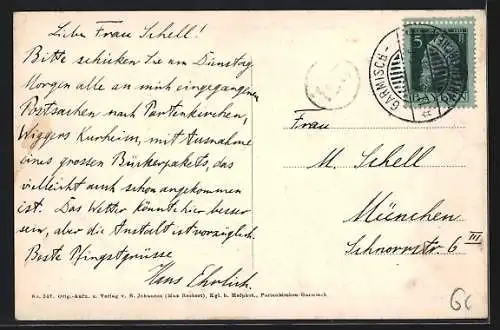 Liebe Frau Schell!
Bitte schicken Sie am Dienstag
Morgen alle an mich eingegangenen
Postsachen nach Partenkirchen,
Wiggers Kurheim, mit Ausnahme
eines grossen Bücherpakets, das
vielleicht auch schon angekommen
ist. Das Wetter könnte hier besser
sein, aber die Anstalt ist vorzüglich.
Beste Pfingstgrüsse
Hans Ehrlich.
5
GARMISCH-
Frau
M. Schell
München
Schnorrstr. 6 III
No. 247. Orig.-Aufn. u. Verlag v. B. Johannes (Max Beckert), Kgl. b. Hofphot., Partenkirchen-Garmisch